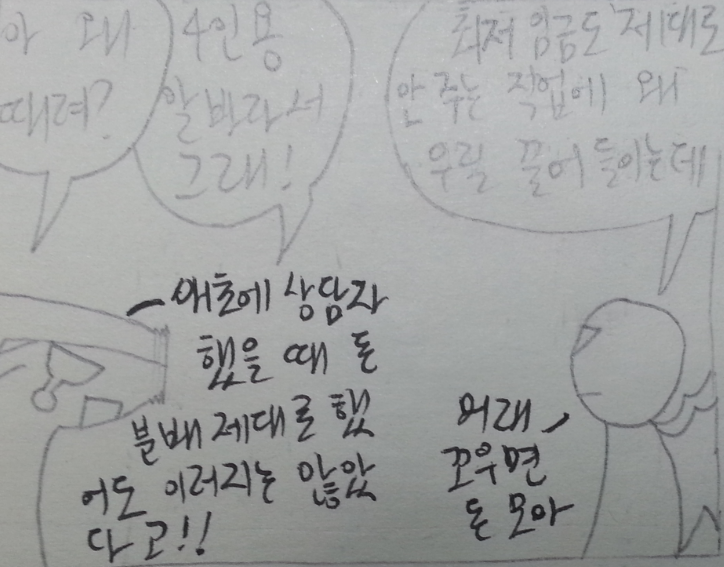 아 왜
때려?
4인용
알바라서
그래!
최저 임금도 제대로
안 주는 직업에 왜
우릴 끌어 들이는데
애초에 상담자
했을 때 돈
분배 제대로 했
어도 이러지는 않았
다고!!
꼬우면
돈 모아